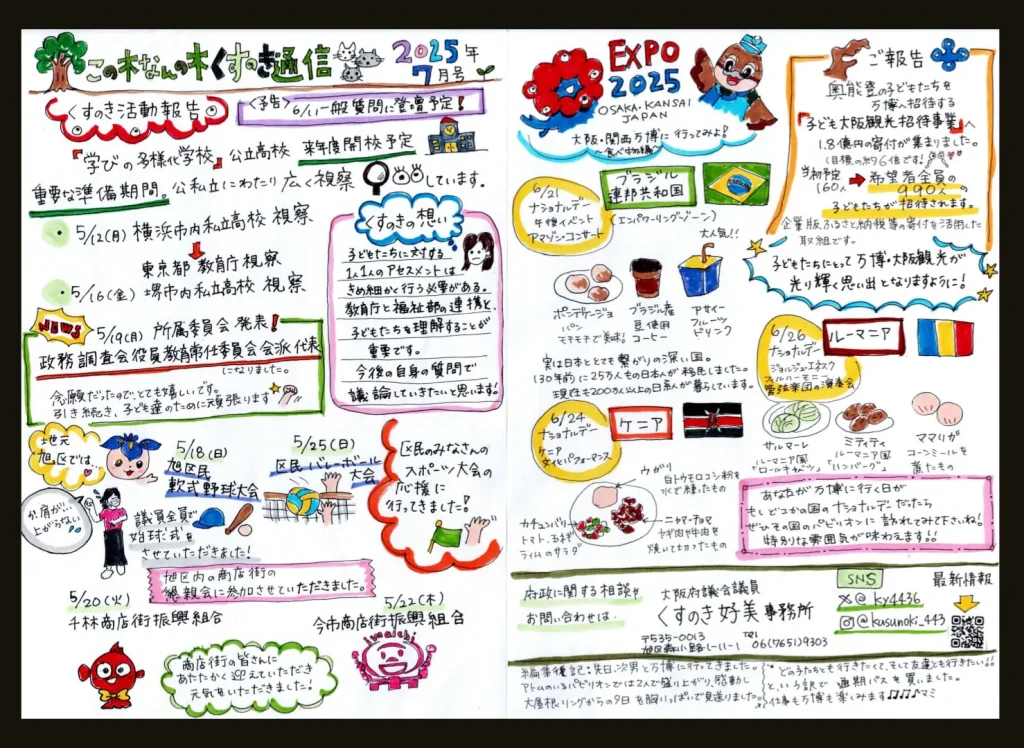 この木なんの木くすのき通信
2025年
7月号
くすのき活動報告
〈予告〉6/11一般質問に登壇予定!
『学びの多様化学校』公立高校 来年度開校予定
重要な準備期間。公私立にわたり広く視察しています。
・5/12(月) 横浜市内私立高校 視察
東京都 教育庁 視察
・5/16(金) 堺市内私立高校 視察
NEWS
5/19(月) 所属委員会 発表!
政務調査会役員教育常任委員会会派代表
になりました。
念願だったのでとても嬉しいです。
引き続き、子ども達のために頑張ります
くすのきの想い
子どもたちに対する
1人1人のアセスメントは
きめ細かく行う必要がある。
教育庁と福祉部の連携と、
子どもたちを理解することが
重要です。
今後の自身の質問で
議論していきたいと思います!
地元
旭区では…
5/18(日)
旭区民
軟式野球大会
5/25(日)
区民バレーボール
大会
か、肩がい…
上がらない
議員全員で
始球式を
させていただきました!
区民のみなさんの
スポーツ大会の
応援に
行ってきました!
旭区内の商店街の
懇親会に参加させていただきました。
5/20(火)
千林商店街振興組合
5/22(木)
今市商店街振興組合
商店街の皆さんに
あたたかく迎えていただき
元気をいただきました!
imaichi
EXPO
2025
OSAKA・KANSAI
JAPAN
大阪・関西万博に行ってみよ!
〜食べ物編〜
6/21
ナショナルデー
午後イベント
アマゾン・コンサート
ブラジル
連邦共和国
(エンパワーリングゾーン)
大人気!!
ポンデケージョ
パン
モチモチで美味!
ブラジル産
豆使用
コーヒー
アサイー
フルーツ
ドリンク
実は日本ととても繋がりの深い国。
130年前に25万人もの日本人が移民しました。
現在も200万人以上の日系人が暮らしています。
6/24
ナショナルデー
ケニア
文化パフォーマンス
ケニア
ウガリ
白トウモロコシ粉を
水で練ったもの
カチュンバリ
トマト、玉ネギ
ライムのサラダ
ニャマ・チョマ
ヤギ肉や牛肉を
焼いてカットしたもの
ご報告
奥能登の子どもたちを
万博へ招待する
『子ども大阪観光招待事業』へ
1.8億円の寄付が集まりました。
(目標の約6倍です!)
当初予定
160人
希望者全員の
990人の
子どもたちが招待されます。
企業版ふるさと納税等の寄付を活用した
取組です。
子どもたちにとって万博・大阪観光が
光り輝く思い出となりますように!
6/26
ナショナルデー
ジョルジュ・エネスク
フィルハーモニー
管弦楽団の演奏会
ルーマニア
サルマーレ
ルーマニア国
「ロールキャベツ」
ミティティ
ルーマニア国
「ハンバーグ」
ママリガ
コーンミールを
蒸したもの
あなたが万博に行く日が
もしどこかの国のナショナルデーだったら
ぜひその国のパビリオンに訪れてみて下さいね!
特別な雰囲気が味わえます!!
府政に関する相談や
お問い合わせは、
大阪府議会議員
くすのき好美事務所
〒535-0013
TEL 06(7651)9303
SNS
X@ky4436
@kusunoki_443
最新情報
編集後記:先日、次男と万博に行ってきました。
アトムのいるパビリオンでは2人で盛り上がり、感動し
大屋根リングからの夕日を胸いっぱいで見送りました。
どの子たちとも行きたくて、そして友達とも行きたい!!
という訳で 通期パスを買いました。
仕事も万博も楽しみます♪♪♪マミ